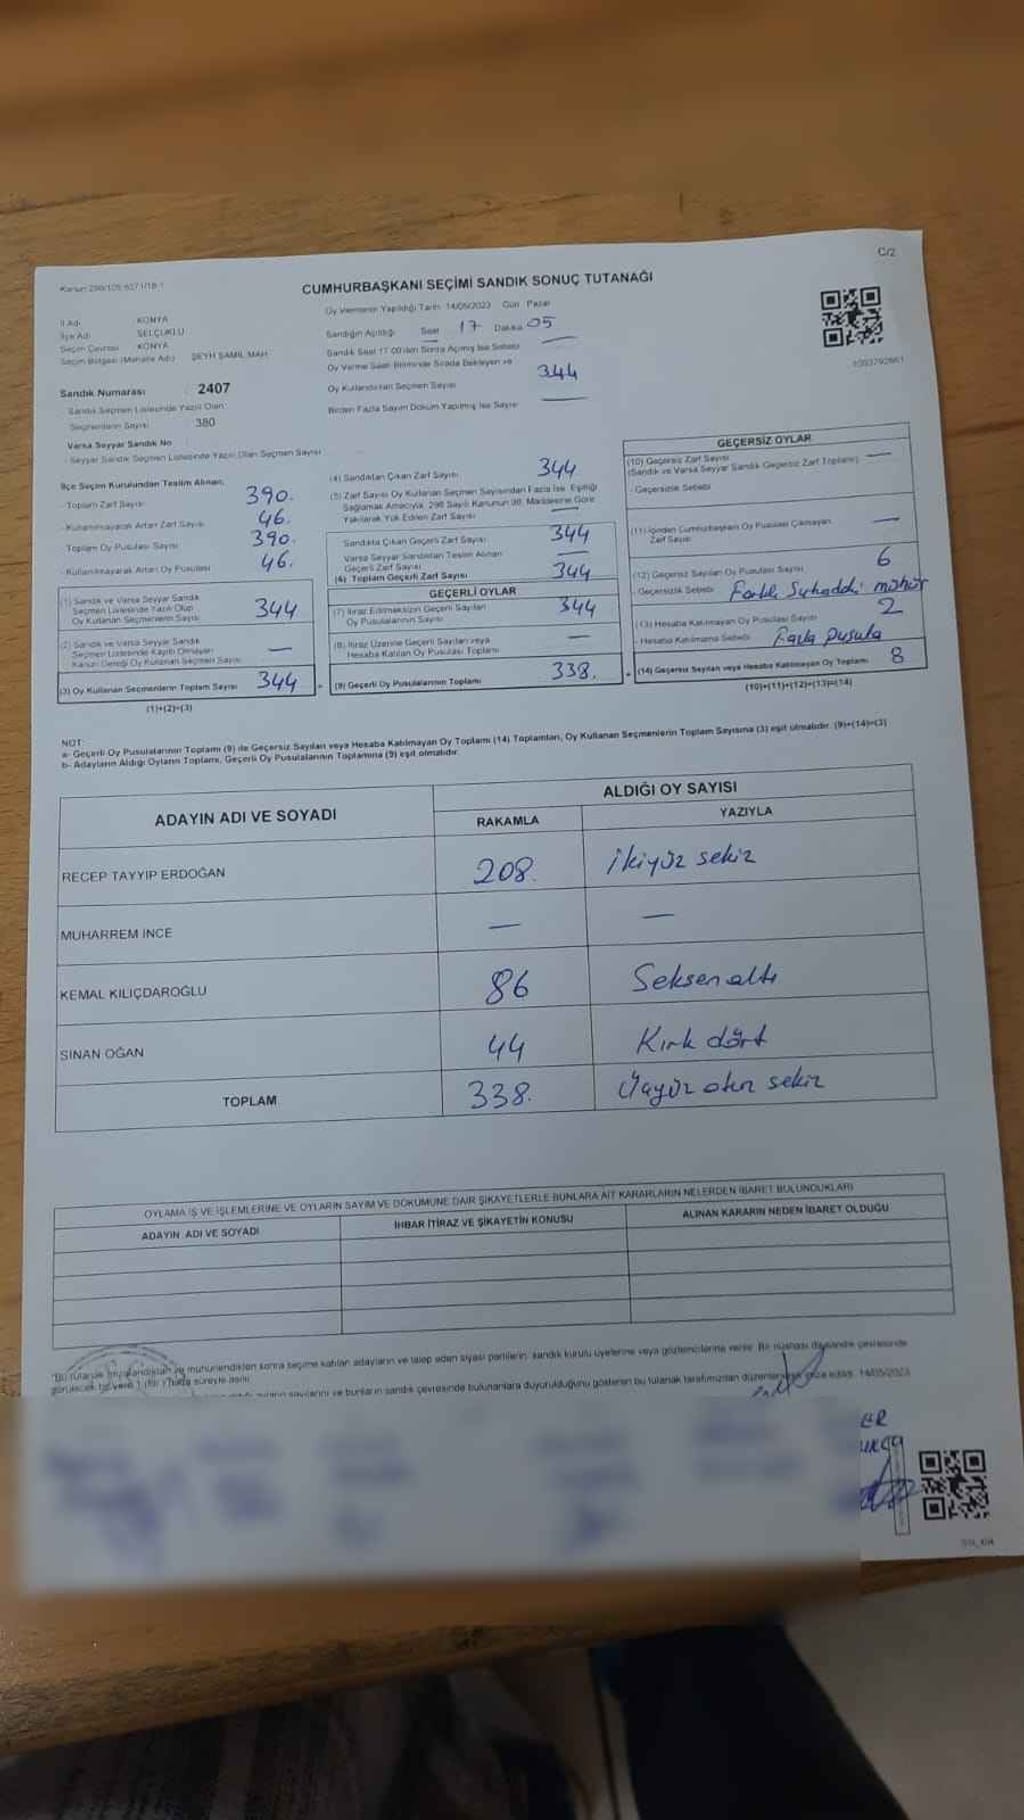 C/2
CUMHURBAŞKANI SEÇİMİ SANDIK SONUÇ TUTANAĞI
İl Adı KONYA
İlçe Adı SELÇUKLU
Seçim Çevresi KONYA
Seçim Bölgesi (Mahalle Adı) ŞEYH ŞAMİL MAH.
Oy Vermenin Yapıldığı Tarih 14/05/2023 Gün Pazar
Sandığın Açıldığı Saat 17 Dakika 05
Sandık Saat 17:00'den Sonra Açılmış İse Sebebi —
Oy Verme Saati Bitiminde Sırada Bekleyen ve
Oy Kullandırılan Seçmen Sayısı 344
Birden Fazla Sayım Döküm Yapılmış İse Sayısı —
Sandık Numarası 2407
Sandık Seçmen Listesinde Yazılı Olan
Seçmenlerin Sayısı 380
Varsa Seyyar Sandık No
- Seyyar Sandık Seçmen Listesinde Yazılı Olan Seçmen Sayısı
İlçe Seçim Kurulundan Teslim Alınan;
- Toplam Zarf Sayısı 390.
- Kullanılmayarak Artan Zarf Sayısı 46.
Toplam Oy Pusulası Sayısı 390.
- Kullanılmayarak Artan Oy Pusulası 46.
(1) Sandık ve Varsa Seyyar Sandık
Seçmen Listesinde Yazılı Olup
Oy Kullanan Seçmenlerin Sayısı 344
(2) Sandık ve Varsa Seyyar Sandık
Seçmen Listesinde Kayıtlı Olmayan
Kanun Gereği Oy Kullanan Seçmen Sayısı —
(3) Oy Kullanan Seçmenlerin Toplam Sayısı 344
(1)+(2)=(3)
(4) Sandıktan Çıkan Zarf Sayısı 344
(5) Zarf Sayısı Oy Kullanan Seçmen Sayısından Fazla İse, Eşitliği
Sağlamak Amacıyla, 298 Sayılı Kanunun 98. Maddesine Göre
Yakılarak Yok Edilen Zarf Sayısı —
Sandıkta Çıkan Geçerli Zarf Sayısı 344
Varsa Seyyar Sandıktan Teslim Alınan
Geçerli Zarf Sayısı —
(6) Toplam Geçerli Zarf Sayısı 344
GEÇERLİ OYLAR
(7) İtiraz Edilmeksizin Geçerli Sayılan
Oy Pusulalarının Sayısı 344
(8) İtiraz Üzerine Geçerli Sayılan veya
Hesaba Katılan Oy Pusulası Toplamı —
(9) Geçerli Oy Pusulalarının Toplamı 338.
GEÇERSİZ OYLAR
(10) Geçersiz Zarf Sayısı
(Sandık ve Varsa Seyyar Sandık Geçersiz Zarf Toplamı) —
- Geçersizlik Sebebi
(11) İçinden Cumhurbaşkanı Oy Pusulası Çıkmayan
Zarf Sayısı —
(12) Geçersiz Sayılan Oy Pusulası Sayısı 6
- Geçersizlik Sebebi
mühür
(13) Hesaba Katılmayan Oy Pusulası Sayısı 2
- Hesaba Katılmama Sebebi Fazla pusula
(14) Geçersiz Sayılan veya Hesaba Katılmayan Oy Toplamı 8
(10)+(11)+(12)+(13)=(14)
NOT:
a- Geçerli Oy Pusulalarının Toplamı (9) ile Geçersiz Sayılan veya Hesaba Katılmayan Oy Toplamı (14) Toplamları, Oy Kullanan Seçmenlerin Toplam Sayısına (3) eşit olmalıdır. (9)+(14)=(3)
b- Adayların Aldığı Oyların Toplamı, Geçerli Oy Pusulalarının Toplamına (9) eşit olmalıdır.
ADAYIN ADI VE SOYADI
ALDIĞI OY SAYISI
RAKAMLA YAZIYLA
RECEP TAYYİP ERDOĞAN 208. İkiyüz sekiz
MUHARREM İNCE — —
KEMAL KILIÇDAROĞLU 86 Seksen altı
SİNAN OĞAN 44 Kırk dört
TOPLAM 338. Üçyüz otuz sekiz
OYLAMA İŞ VE İŞLEMLERİNE VE OYLARIN SAYIM VE DÖKÜMÜNE DAİR ŞİKAYETLERLE BUNLARA AİT KARARLARIN NELERDEN İBARET BULUNDUKLARI
ADAYIN ADI VE SOYADI
İHBAR İTİRAZ VE ŞİKAYETİN KONUSU
ALINAN KARARIN NEDEN İBARET OLDUĞU